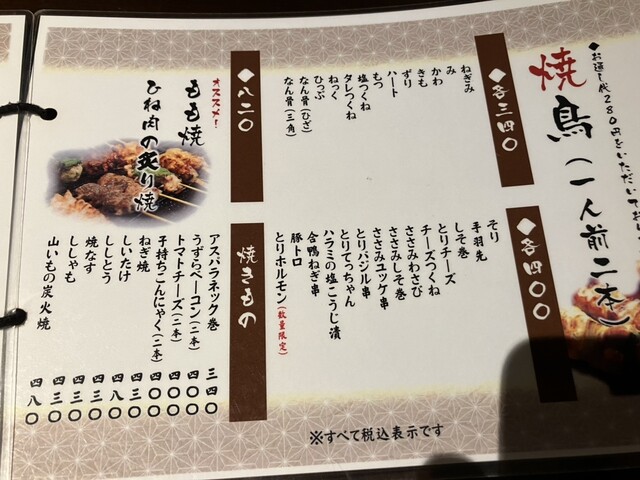 ◆お通し代280円をいただいてお
焼鳥（一人前二本）
◆各三四〇
ねぎみ
み
かわ
きも
ずり
ハート
もつ
塩つくね
タレつくね
ねっく
ひっぷ
なん骨（ひざ）
なん骨（三角）
◆各四〇〇
そり
手羽先
しそ巻
とりチーズ
チーズつくね
ささみわさび
ささみしそ巻
ささみユッケ串
とりバジル串
とりてっちゃん
ハラミの塩こうじ漬
合鴨ねぎ串
豚トロ
とりホルモン（数量限定）
◆八二〇
オススメ！
もも焼
ひね肉の炙り焼
焼きもの
アスパラネック巻 三四〇
うずらベーコン（二本） 四〇〇
トマトチーズ（二本） 四〇〇
子持ちこんにゃく（二本） 四〇〇
ねぎ焼 四三〇
しいたけ 四八〇
ししとう 四三〇
焼なす 四三〇
ししゃも 四三〇
山いもの炭火焼 四八〇
※すべて税込表示です